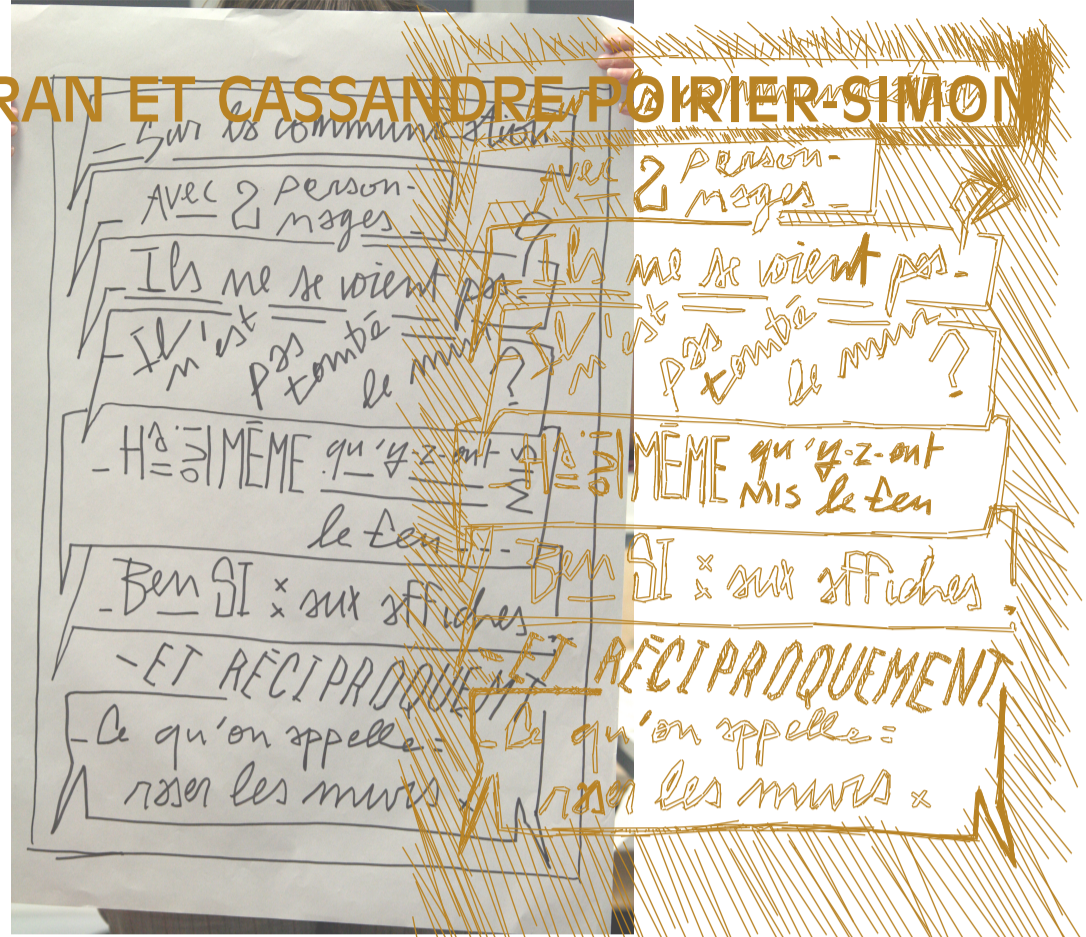 RAN ET CASSANDRE POIRIER-SIMON
- Sur la communication
Avec 2 person-
nages -
Ils ne se voient pas -
Il n'est
pas tombé
le mur ?
- Hâ OUI! MÊME qu'y-z-ont MIS
le feu ...
- Ben SI : aux affiches
- ET RÉCIPROQUEMT
- Ce qu'on appelle :
raser les murs x
Sur la communication
Avec 2 person-
nages -
Ils ne se voient pas -
Il n'est
pas tombé
le mur ?
Hâ OUI! MÊME qu'y-z-ont
MIS le feu
Ben SI : aux affiches
- ET RÉCIPROQUEMENT
- Ce qu'on appelle :
raser les murs x